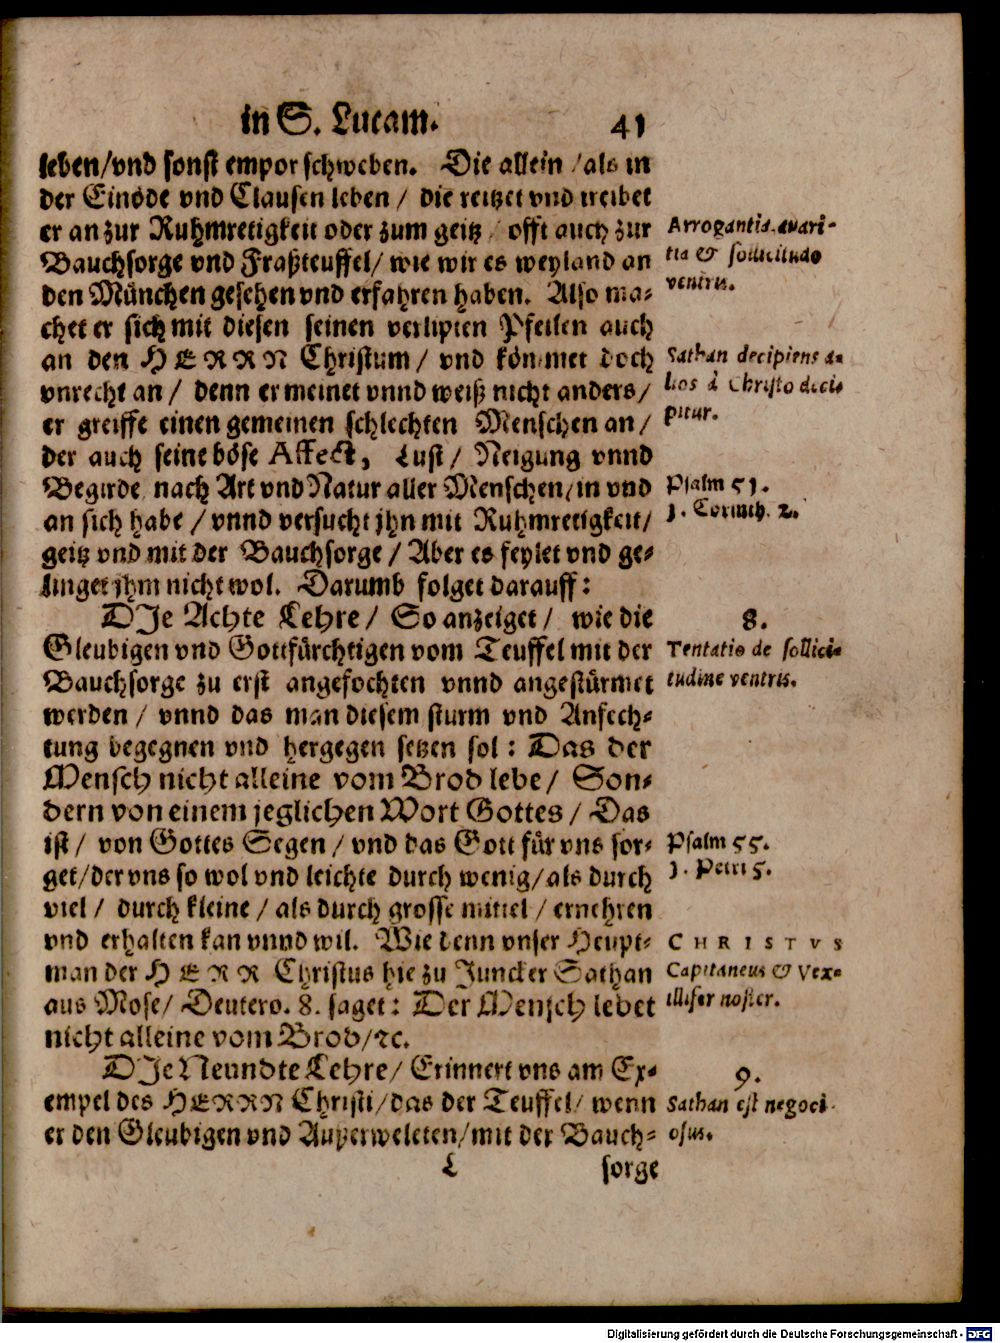 in S. Lucam. 41
leben/vnd sonst empor schweben. Die allein/als in
der Einöde vnd Clausen leben / die reitzet vnd treibet
er an zur Ruhmretigkeit oder zum geitz / offt auch zur
Bauchsorge vnd Fraßteuffel/ wie wir es weyland an
den München gesehen vnd erfahren haben. Also ma-
chet er sich mit diesen seinen verlipten Pfeilen auch
an den HERRN Christum / vnd kömmet doch
vnrecht an / denn er meinet vnnd weiß nicht anders/
er greiffe einen gemeinen schlechten Menschen an/
der auch seine böse Affect, Lust/ Neigung vnnd
Begirde nach Art vnd Natur aller Menschen/in vnd
an sich habe / vnnd versucht jhn mit Ruhmretigkeit/
geitz vnd mit der Bauchsorge / Aber es feylet vnd ge-
linget jhm nicht wol. Darumb folget darauff:
DJe Achte Lehre / So anzeiget / wie die
Gleubigen vnd Gottfürchtigen vom Teuffel mit der
Bauchsorge zu erst angefochten vnnd angestürmet
werden / vnnd das man diesem sturm vnd Anfech-
tung begegnen vnd hergegen setzen sol: Das der
Mensch nicht alleine vom Brod lebe/ Son-
dern von einem jeglichen Wort Gottes / Das
ist / von Gottes Segen / vnd das Gott für vns sor-
get/der vns so wol vnd leichte durch wenig/als durch
viel / durch kleine / als durch grosse mittel / ernehren
vnd erhalten kan vnnd wil. Wie denn vnser Heupt-
man der HERR Christus hie zu Juncker Sathan
aus Mose/ Deutero. 8. saget: Der Mensch lebet
nicht alleine vom Brod/ꝛc.
DJe Neundte Lehre/ Erinnert vns am Ex-
empel des HERRN Christi/das der Teuffel/ wenn
er den Gleubigen vnd Außerweleten/mit der Bauch-
L sorge
Arrogantia. avari-
tia & sollicitudo
ventris.
Sathan decipiens a-
lios à Christo deci-
pitur.
Psalm 51.
1. Corinth. 2.
8.
Tentatio de sollici-
tudine ventris.
Psalm 55.
1. Petri 5.
CHRISTVS
Capitaneus & Vex-
illifer noster.
9.
Sathan est negoci-
osus.
Digitalisierung gefördert durch die Deutsche Forschungsgemeinschaft - DFG